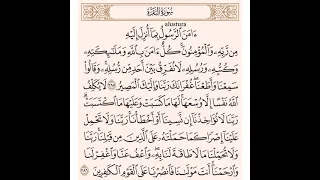 سُورَةُ البَقَرَةِ
alustura
ءَامَنَ ٱلرَّسُولُ بِمَآ أُنزِلَ إِلَيْهِ
مِن رَّبِّهِۦ وَٱلْمُؤْمِنُونَ كُلٌّ ءَامَنَ بِٱللَّهِ وَمَلَٰٓئِكَتِهِۦ
وَكُتُبِهِۦ وَرُسُلِهِۦ لَا نُفَرِّقُ بَيْنَ أَحَدٍ مِّن رُّسُلِهِۦ وَقَالُوا۟
سَمِعْنَا وَأَطَعْنَا غُفْرَانَكَ رَبَّنَا وَإِلَيْكَ ٱلْمَصِيرُ ٢٨٥ لَا يُكَلِّفُ
ٱللَّهُ نَفْسًا إِلَّا وُسْعَهَا لَهَا مَا كَسَبَتْ وَعَلَيْهَا مَا ٱكْتَسَبَتْ
رَبَّنَا لَا تُؤَاخِذْنَآ إِن نَّسِينَآ أَوْ أَخْطَأْنَا رَبَّنَا وَلَا تَحْمِلْ
عَلَيْنَآ إِصْرًا كَمَا حَمَلْتَهُۥ عَلَى ٱلَّذِينَ مِن قَبْلِنَا رَبَّنَا
وَلَا تُحَمِّلْنَا مَا لَا طَاقَةَ لَنَا بِهِۦ وَٱعْفُ عَنَّا وَٱغْفِرْ لَنَا
وَٱرْحَمْنَآ أَنتَ مَوْلَىٰنَا فَٱنصُرْنَا عَلَى ٱلْقَوْمِ ٱلْكَٰفِرِينَ ٢٨٦